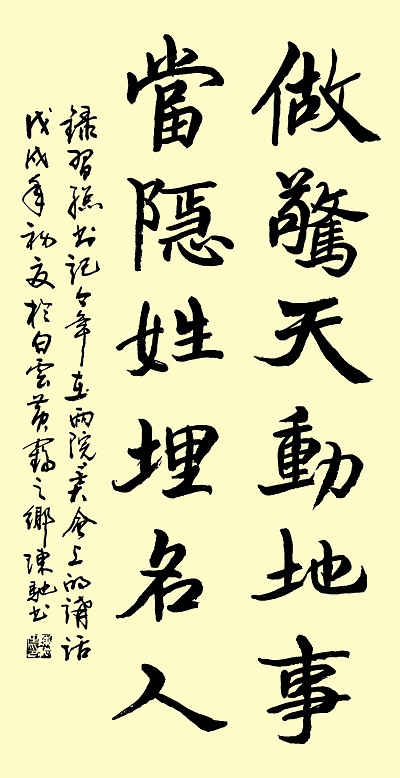 做驚天動地事
當隱姓埋名人
錄習總书記今年在兩院大会上的講话
戊戌年初夏於白雲黄鶴之鄉陳馳书